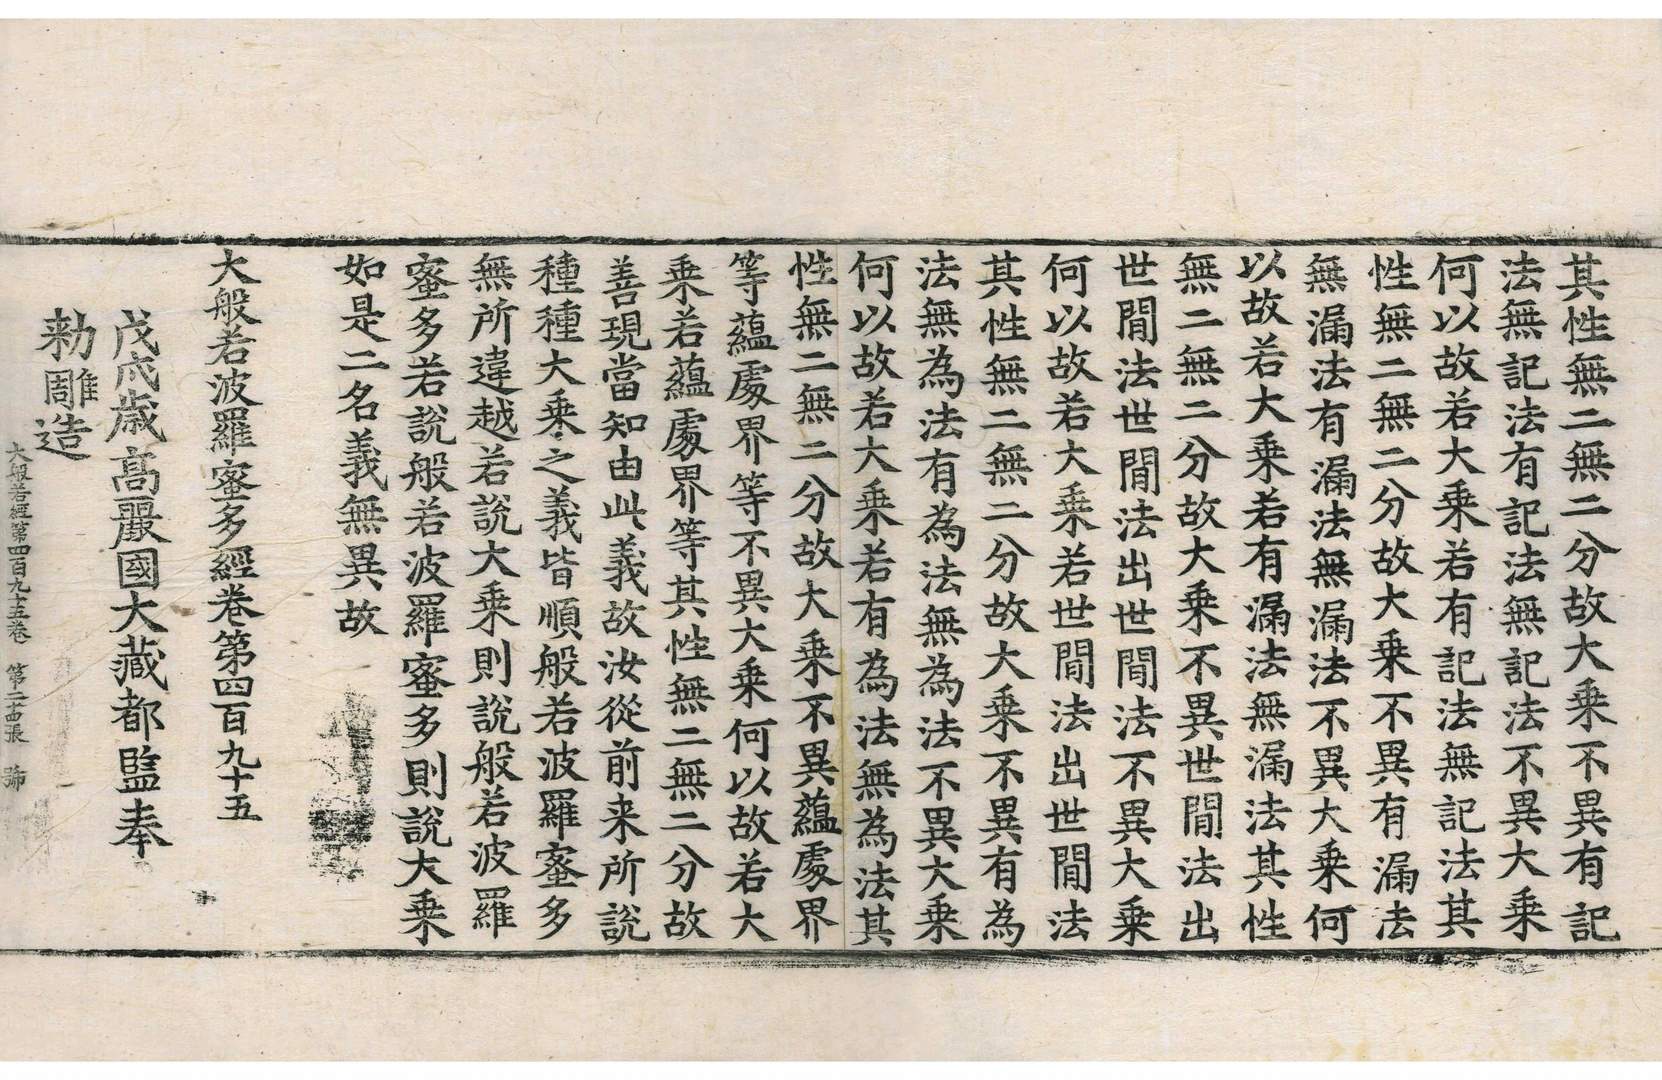 其性無二無二分故大乘不異有記
法無記法有記法無記法不異大乘
何以故若大乘若有記法無記法其
性無二無二分故大乘不異有漏法
無漏法有漏法無漏法不異大乘何
以故若大乘若有漏法無漏法其性
無二無二分故大乘不異世間法出
世間法世間法出世間法不異大乘
何以故若大乘若世間法出世間法
其性無二無二分故大乘不異有為
法無為法有為法無為法不異大乘
何以故若大乘若有為法無為法其
性無二無二分故大乘不異蘊處界
等蘊處界等不異大乘何以故若大
乘若蘊處界等其性無二無二分故
善現當知由此義故汝從前来所說
種種大乘之義皆順般若波羅蜜多
無所違越若說大乘則說般若波羅
蜜多若說般若波羅蜜多則說大乘
如是二名義無異故
大般若波羅蜜多經卷第四百九十五
戊戌歲高麗國大藏都監奉
勑雕造
大般若經第四百九十五卷 第二十四張 號